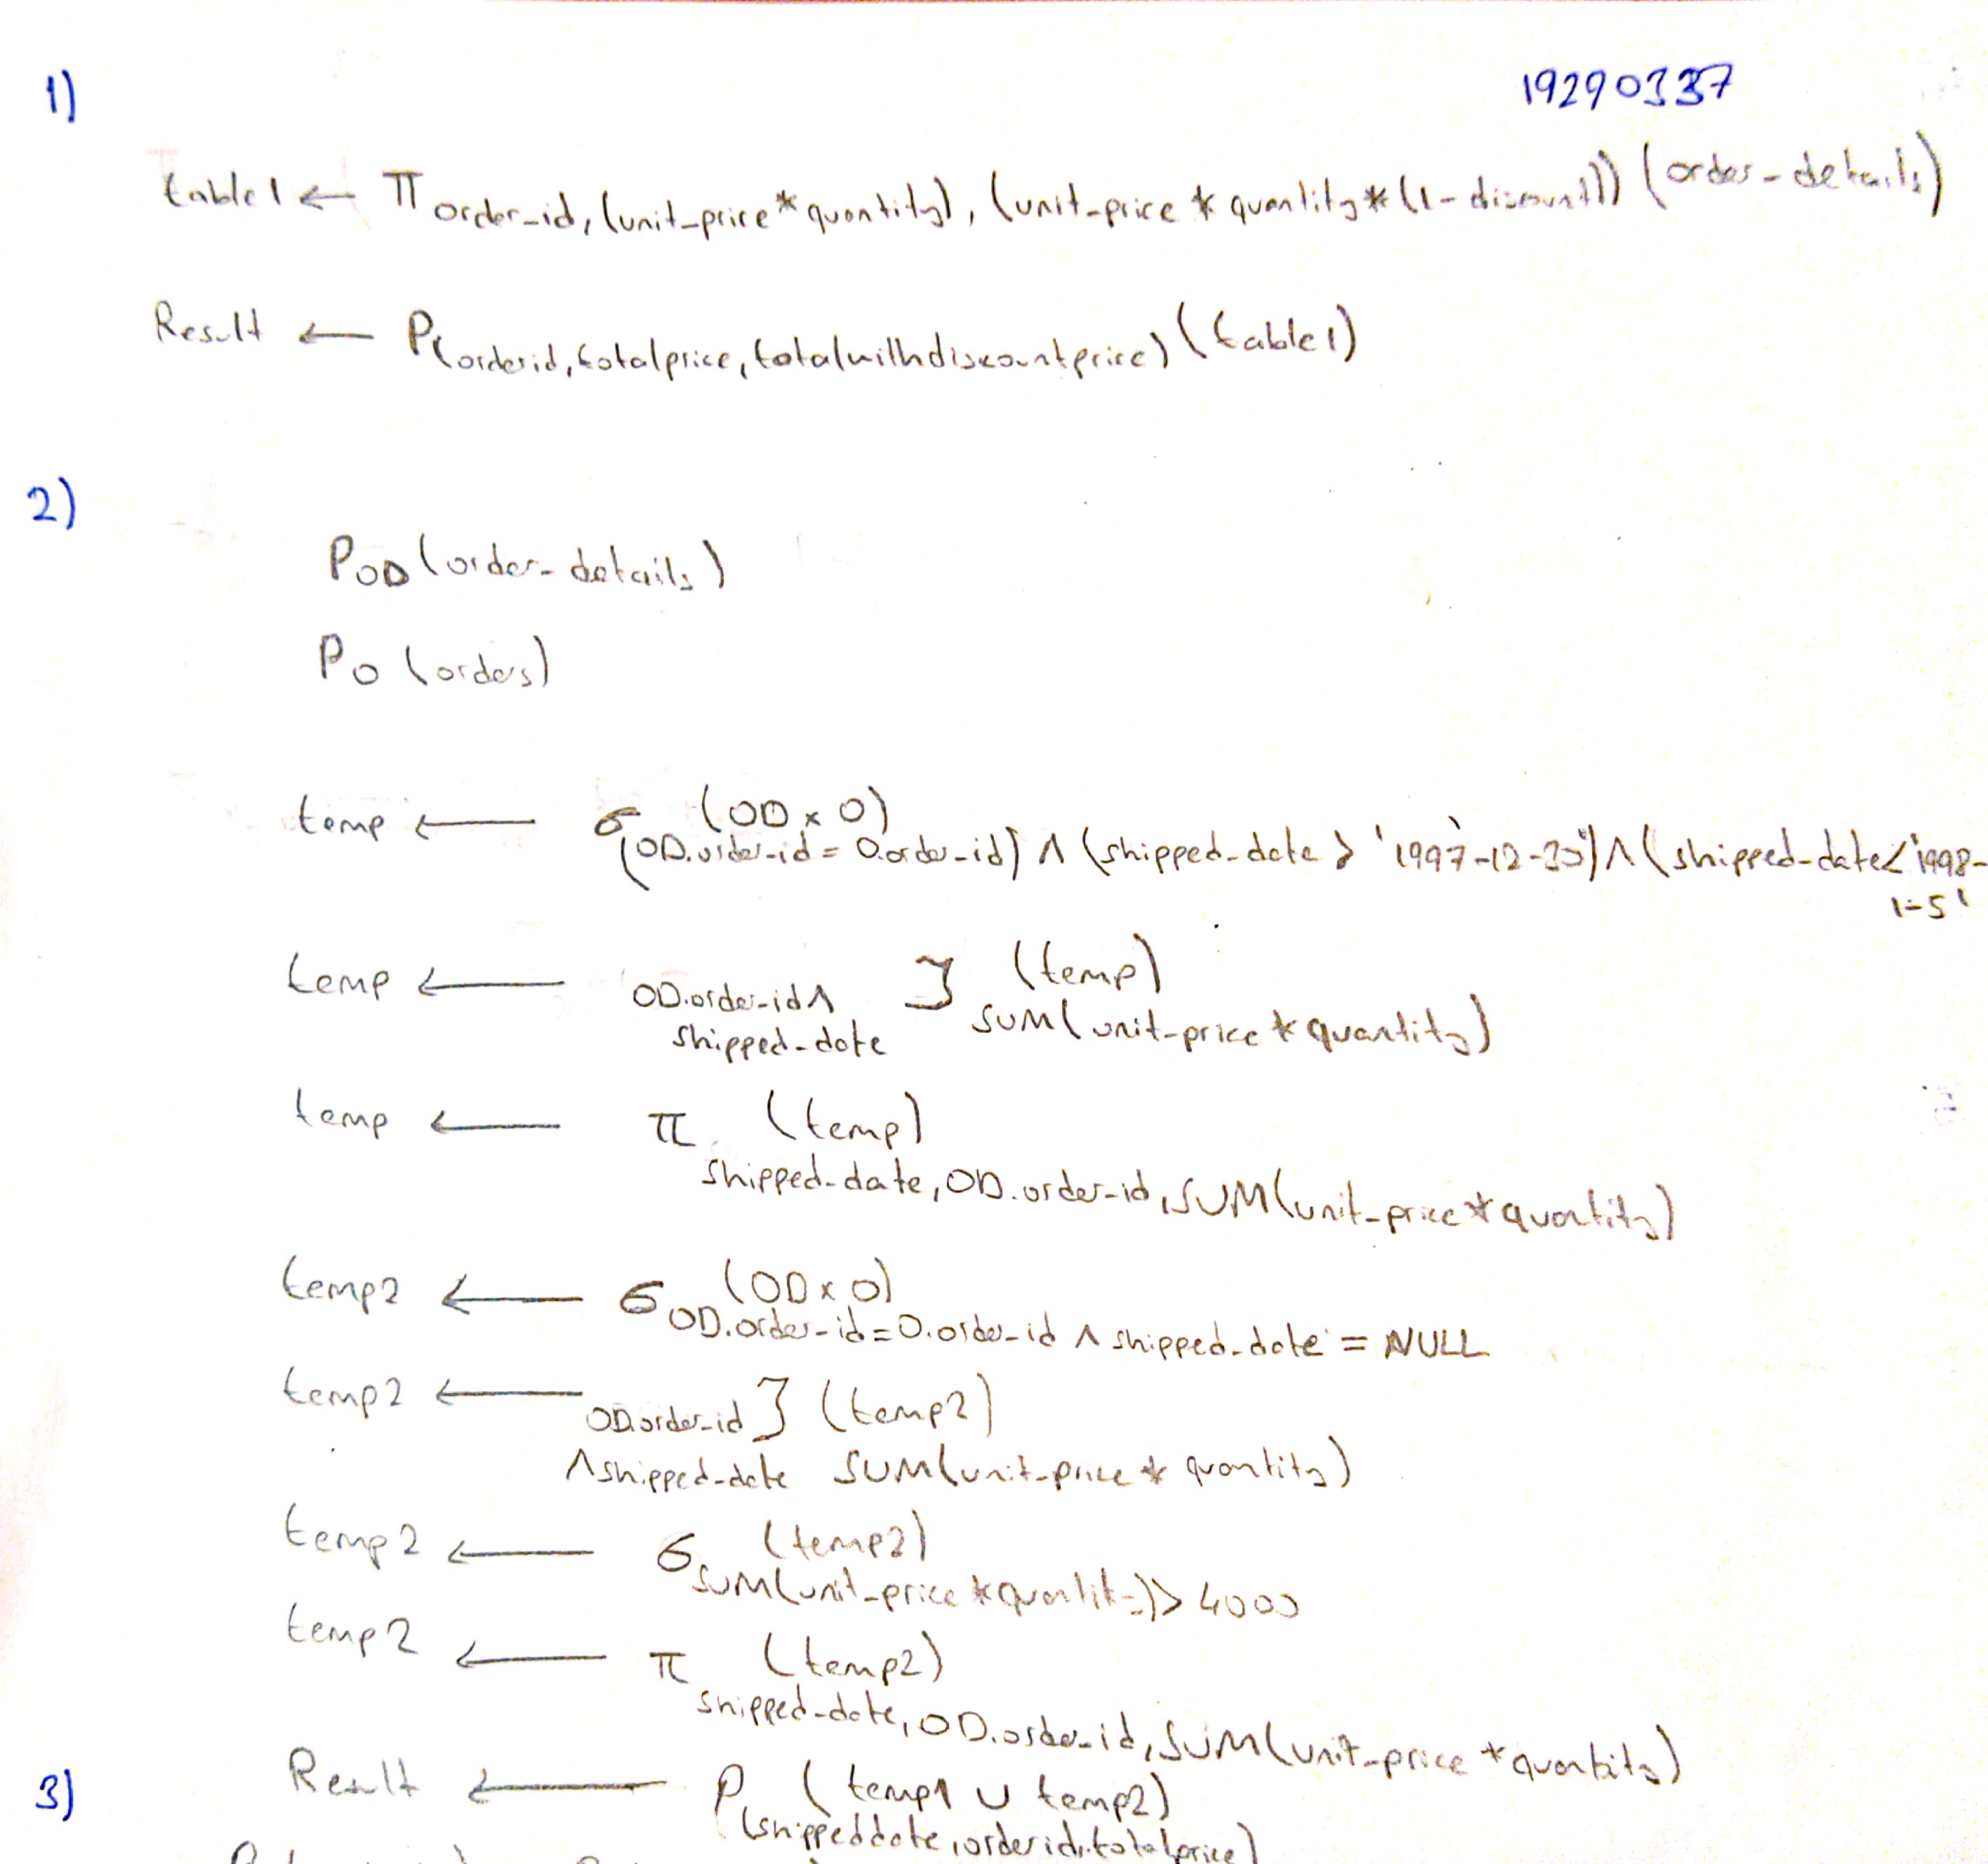 1) 19290337
table1 ← π order_id, (unit_price * quantity), (unit_price * quantity * (1 - discount)) (order-details)
Result ← P(orderid, totalprice, totalwithdiscountprice) (table1)
2)
P OD (order-details)
P O (orders)
temp ← σ (OD x O)
(OD.order_id = O.order_id) ∧ (shipped-date > '1997-12-') ∧ (shipped-date < '1998-
1-5'
temp ← OD.order_id ∧ ℑ (temp)
shipped-date SUM(unit-price * quantity)
temp ← π (temp)
shipped-date, OD.order-id, SUM(unit-price * quantity)
temp2 ← σ (OD x O)
OD.order-id = O.order-id ∧ shipped-date = NULL
temp2 ← OD.order-id ℑ (temp2)
∧ shipped-date SUM(unit-price * quantity)
temp2 ← σ (temp2)
SUM(unit-price * quantity) > 4000
temp2 ← π (temp2)
shipped-date, OD.order-id, SUM(unit-price * quantity)
Result ← P (temp1 ∪ temp2)
3) (shippeddate, orderid, totalprice)